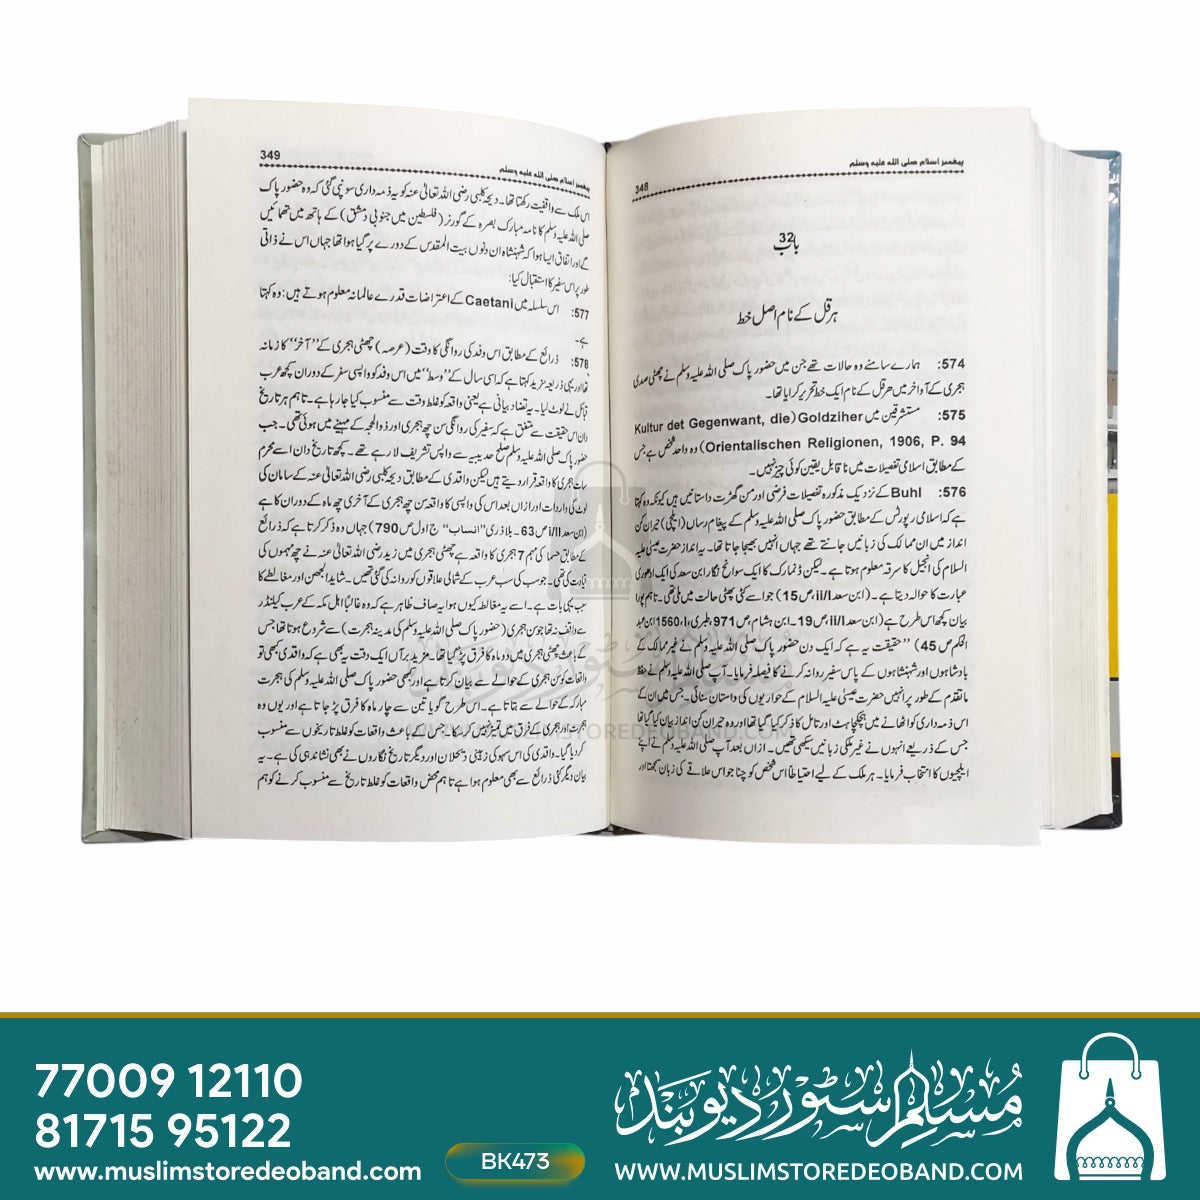 پیغمبر اسلام صلی اللہ علیہ وسلم
348
باب 32
ہرقل کے نام اصل خط
574: ہمارے سامنے وہ حالات تھے جن میں حضور پاک صلی اللہ علیہ وسلم نے چھٹی صدی
ہجری کے آواخر میں ہرقل کے نام ایک خط تحریر کرایا تھا۔
575: مستشرقین میں Goldziher (Kultur det Gegenwant, die
Orientalischen Religionen, 1906, P. 94) وہ واحد شخص ہے جس
کے مطابق اسلامی تفصیلات میں ناقابل یقین کوئی چیز نہیں۔
576: Buhl کے نزدیک مذکورہ تفصیلات فرضی اور من گھڑت داستانیں ہیں کیونکہ وہ کہتا
ہے کہ اسلامی رپورٹس کے مطابق حضور پاک صلی اللہ علیہ وسلم کے پیغام رساں (ایلچی) حیران کن
انداز میں ان ممالک کی زبانیں جانتے تھے جہاں انہیں بھیجا جاتا تھا۔ یہ انداز حضرت عیسیٰ علیہ
السلام کی انجیل کا سرقہ معلوم ہوتا ہے۔ لیکن ڈنمارک کا ایک سوانح نگار ابن سعد کی ایک ادھوری
عبارت کا حوالہ دیتا ہے۔ (ابن سعد ii/I، ص 15) جو اسے کٹی پھٹی حالت میں ملی تھی۔ تاہم پورا
بیان کچھ اس طرح ہے (ابن سعد ii/I، ص 19۔ ابن ہشام، ص 971، طبری، I، 1560 ابن عبد
الحکم ص 45) "حقیقت یہ ہے کہ ایک دن حضور پاک صلی اللہ علیہ وسلم نے غیر ممالک کے
بادشاہوں اور شہنشاہوں کے پاس سفیر روانہ کرنے کا فیصلہ فرمایا۔ آپ صلی اللہ علیہ وسلم نے حفظ
ماتقدم کے طور پر انہیں حضرت عیسیٰ علیہ السلام کے حواریوں کی داستان سنائی۔ جس میں ان کے
اس ذمہ داری کو اٹھانے میں ہچکچاہٹ اور تامل کا ذکر کیا گیا تھا اور وہ حیران کن انداز بیان کیا گیا تھا
جس کے ذریعے انہوں نے غیر ملکی زبانیں سیکھی تھیں۔ ازاں بعد آپ صلی اللہ علیہ وسلم نے اپنے
ایلچیوں کا انتخاب فرمایا۔ ہر ملک کے لیے احتیاطاً اس شخص کو چنا جو اس علاقے کی زبان سمجھتا اور
349
پیغمبر اسلام صلی اللہ علیہ وسلم
اس ملک سے واقفیت رکھتا تھا۔ دیحہ کلبی رضی اللہ تعالیٰ عنہ کو یہ ذمہ داری سونپی گئی کہ وہ حضور پاک
صلی اللہ علیہ وسلم کا نامہ مبارک بصرہ کے گورنر (فلسطین میں جنوبی دمشق) کے ہاتھ میں تھمائیں
گے اور اتفاق ایسا ہوا کہ شہنشاہ ان دنوں بیت المقدس کے دورے پر گیا ہوا تھا جہاں اس نے ذاتی
طور پر اس سفیر کا استقبال کیا:
577: اس سلسلہ میں Caetani کے اعتراضات قدرے عالمانہ معلوم ہوتے ہیں: وہ کہتا
ہے۔
578: ذرائع کے مطابق اس وفد کی روانگی کا وقت (عرصہ) چھٹی ہجری کے "آخر" کا زمانہ
تھا اور یہی ذریعہ مزید کہتا ہے کہ اسی سال کے "وسط" میں اس وفد کو واپسی سفر کے دوران کچھ عرب
قبائل نے لوٹ لیا۔ یہ تضاد بیانی ہے یعنی واقعہ کو غلط وقت سے منسوب کیا جا رہا ہے۔ تاہم ہر تاریخ
دان اس حقیقت سے متفق ہے کہ سفیر کی روانگی سن چھ ہجری اور ذوالحجہ کے مہینے میں ہوئی تھی۔ جب
حضور پاک صلی اللہ علیہ وسلم صلح حدیبیہ سے واپس تشریف لا رہے تھے۔ کچھ تاریخ دان اسے محرم
سات ہجری کا واقعہ قرار دیتے ہیں لیکن واقدی کے مطابق دیحہ کلبی رضی اللہ تعالیٰ عنہ کے سامان کی
لوٹ کی واردات اور ازاں بعد اس کی واپسی کا واقعہ سن چھ ہجری کے آخری چھ ماہ کے دوران کا ہے
(ابن سعد ii/I، ص 63۔ بلاذری "انساب" ج اول ص 790) جہاں وہ ذکر کرتا ہے کہ ذرائع
کے مطابق حسما کی مہم 7 ہجری کا واقعہ ہے چھٹی ہجری میں زید رضی اللہ تعالیٰ عنہ نے چھ مہموں کی
قیادت کی تھی۔ جو سب کی سب عرب کے شمالی علاقوں کو روانہ کی گئی تھیں۔ شاید الجھن اور مغالطے کا
سبب یہی بات ہے۔ اسے یہ مغالطہ کیوں ہوا یہ صاف ظاہر ہے کہ وہ غالباً اہل مکہ کے عرب کیلنڈر
سے واقف نہ تھا جو سن ہجری (حضور پاک صلی اللہ علیہ وسلم کی مدینہ ہجرت) سے شروع ہوتا تھا جس
کے باعث چھٹی ہجری میں دو ماہ کا فرق پڑ گیا تھا۔ مزید برآں ایک دقت یہ بھی ہے کہ واقدی کبھی تو
واقعات کو سن ہجری کے حوالے سے بیان کرتا ہے اور کبھی حضور پاک صلی اللہ علیہ وسلم کی ہجرت
مبارکہ کے حوالے سے بتاتا ہے۔ اس طرح گویا تین سے چار ماہ کا فرق پڑ جاتا ہے اور یوں وہ
ہجرت اور ہجری کے فرق میں تمیز نہیں کر سکا۔ جس کے باعث واقعات کو غلط تاریخوں سے منسوب
کر دیا گیا۔ واقدی کی اس سہو کی ذہبی، دحلان اور دیگر تاریخ نگاروں نے بھی نشاندہی کی ہے۔ یہ
بیان دیگر کئی ذرائع سے بھی معلوم ہوا ہے تاہم محض واقعات کو غلط تاریخ سے منسوب کرنے کو ہم
WWW.MUSLIMSTOREDEOBAND.COM
77009 12110
81715 95122
www.muslimstoredeoband.com
BK473
مسلم سٹور دیوبند
WWW.MUSLIMSTOREDEOBAND.COM